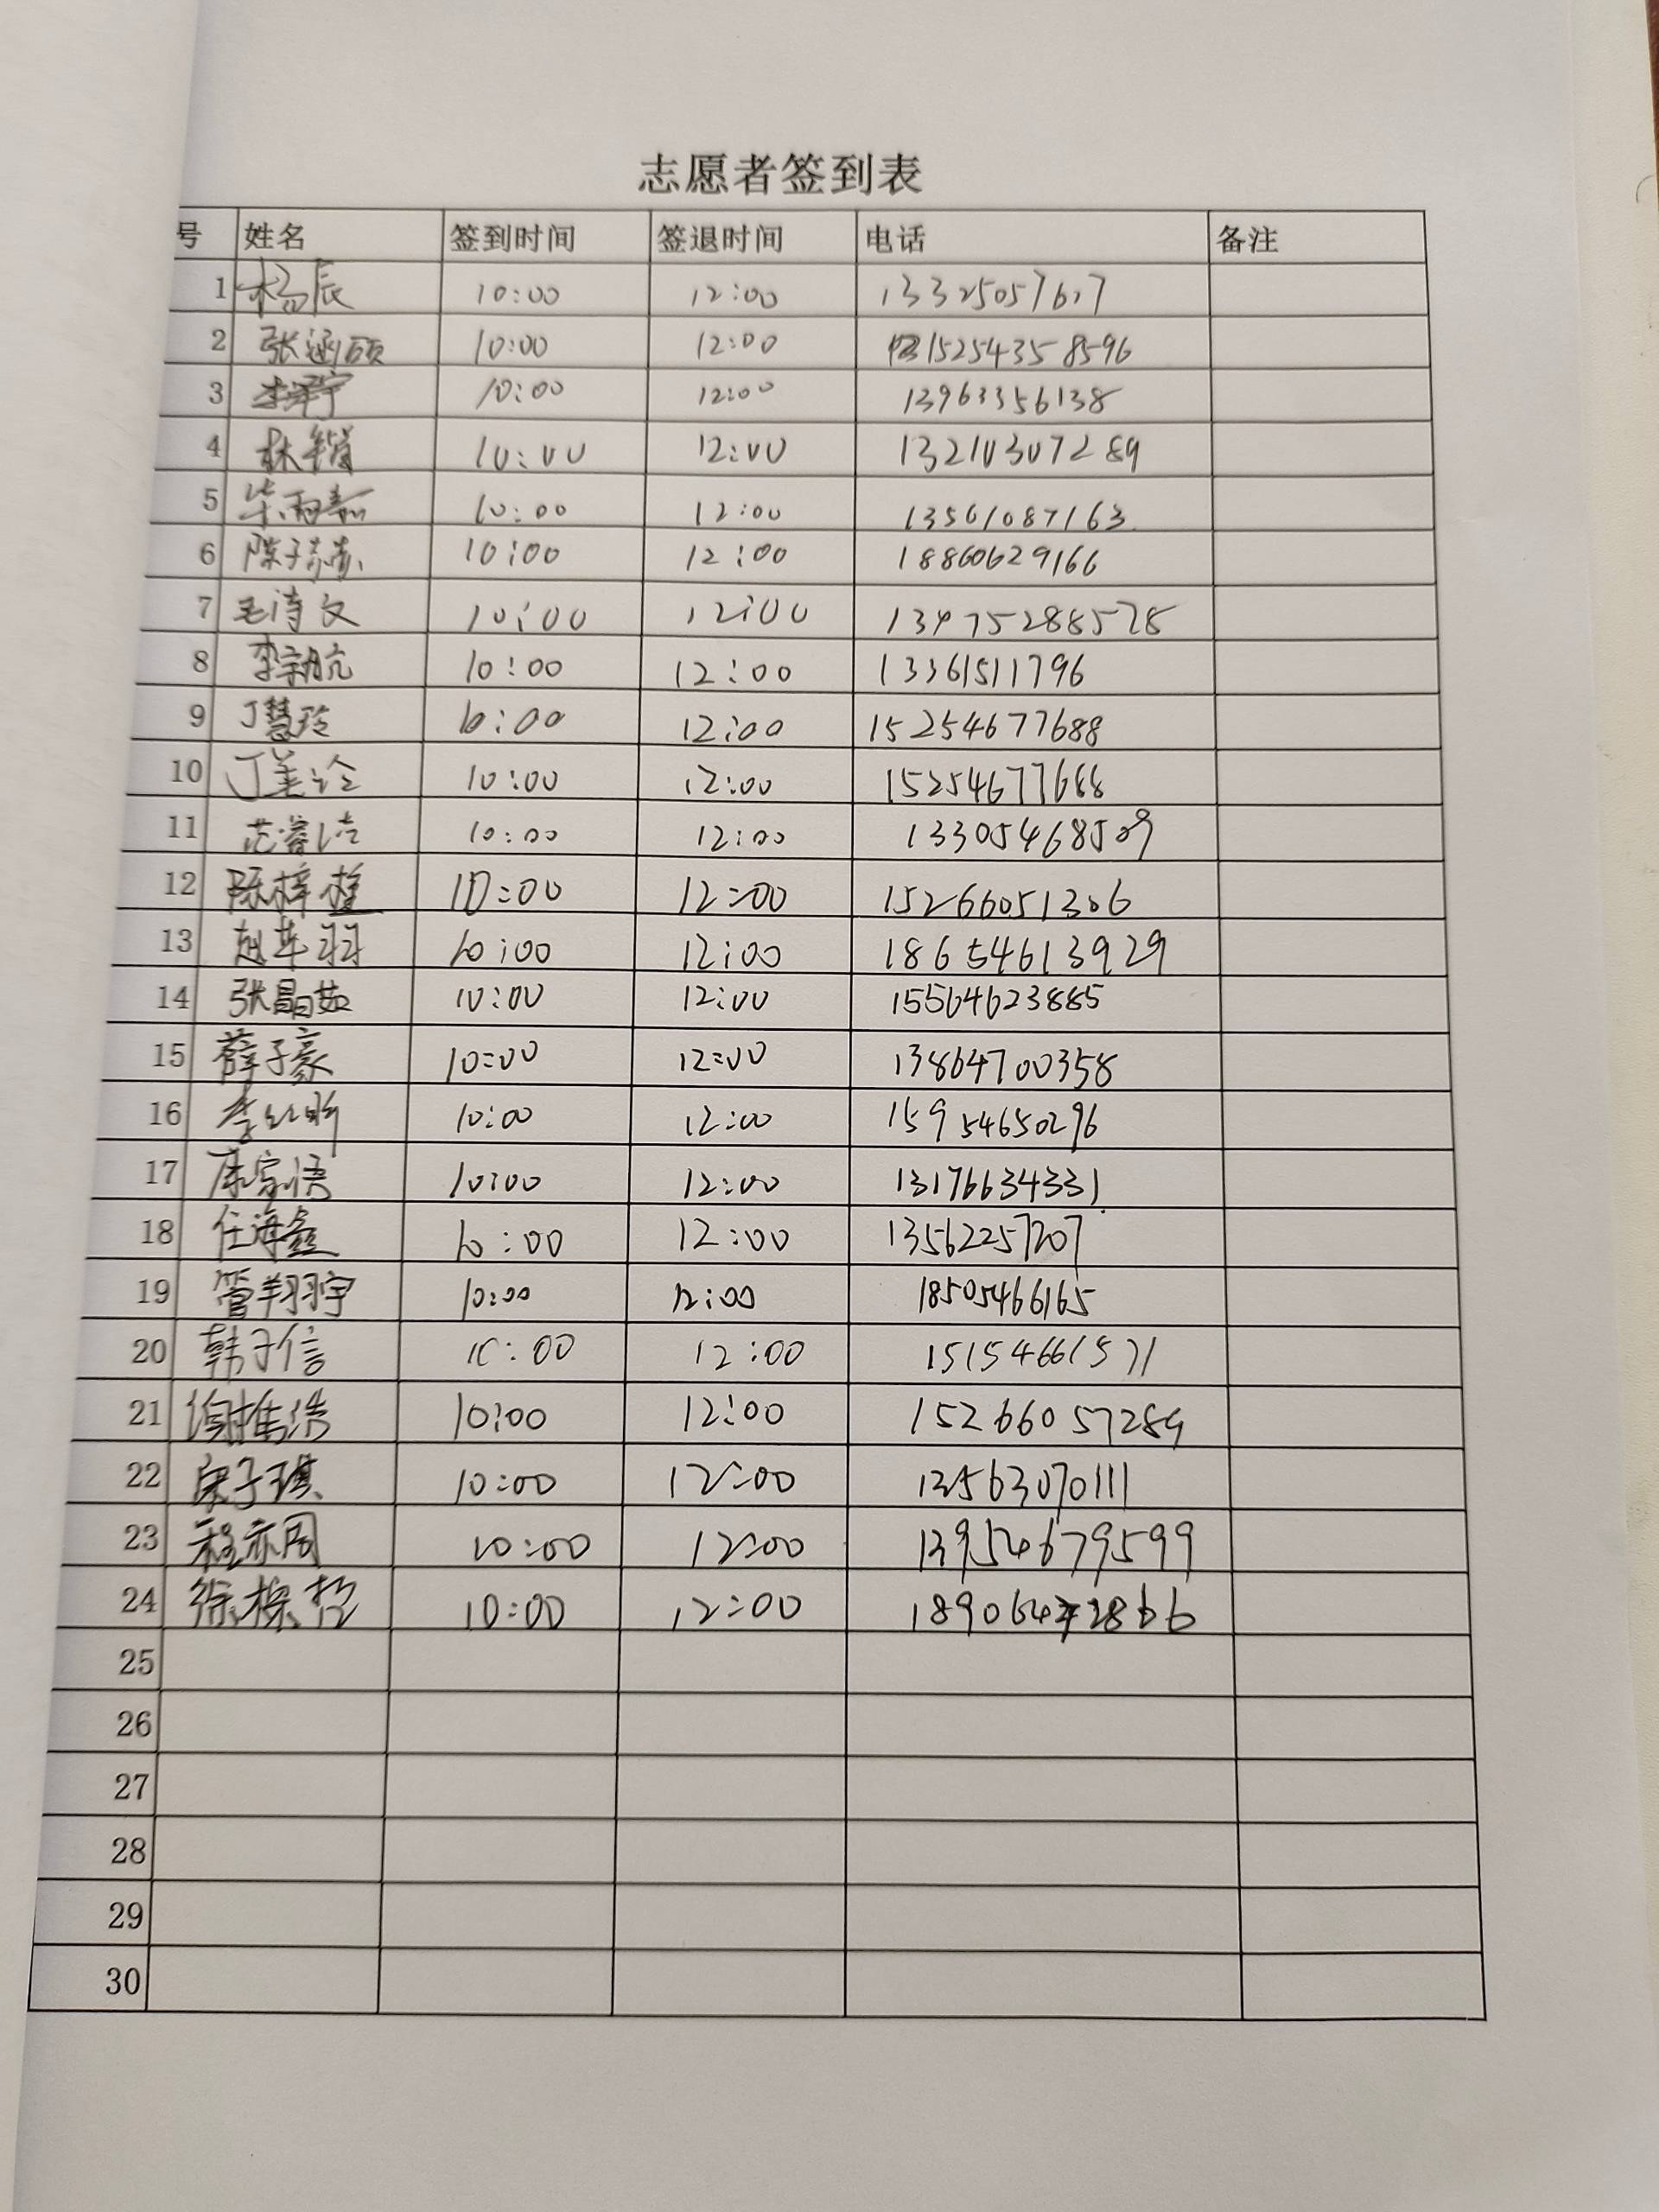 志愿者签到表
号 姓名 签到时间 签退时间 电话 备注
1 杨辰 10:00 12:00 13325057617
2 张涵硕 10:00 12:00 15254358596
3 10:00 12:00 13963356138
4 林 10:00 12:00 13210307289
5 毕雨嘉 10:00 12:00 13561087163
6 陈子 10:00 12:00 18860629166
7 毛诗文 10:00 12:00 13475288578
8 李朝航 10:00 12:00 13361511796
9 丁慧玲 10:00 12:00 15254677688
10 丁美诠 10:00 12:00 15254677688
11 范 10:00 12:00 13305468509
12 陈梓 10:00 12:00 15266051306
13 赵芊羽 10:00 12:00 18654613929
14 张晶茹 10:00 12:00 15564623885
15 薛子豪 10:00 12:00 13864700358
16 李 昕 10:00 12:00 15954650296
17 康家语 10:00 12:00 13176634331
18 任海鑫 10:00 12:00 13562257207
19 管翔宇 10:00 12:00 18505466165
20 韩子信 10:00 12:00 15154661571
21 谢 浩 10:00 12:00 15266057289
22 宋子琪 10:00 12:00 13563070111
23 程亦周 10:00 12:00 13954679599
24 徐 哲 10:00 12:00
25
26
27
28
29
30